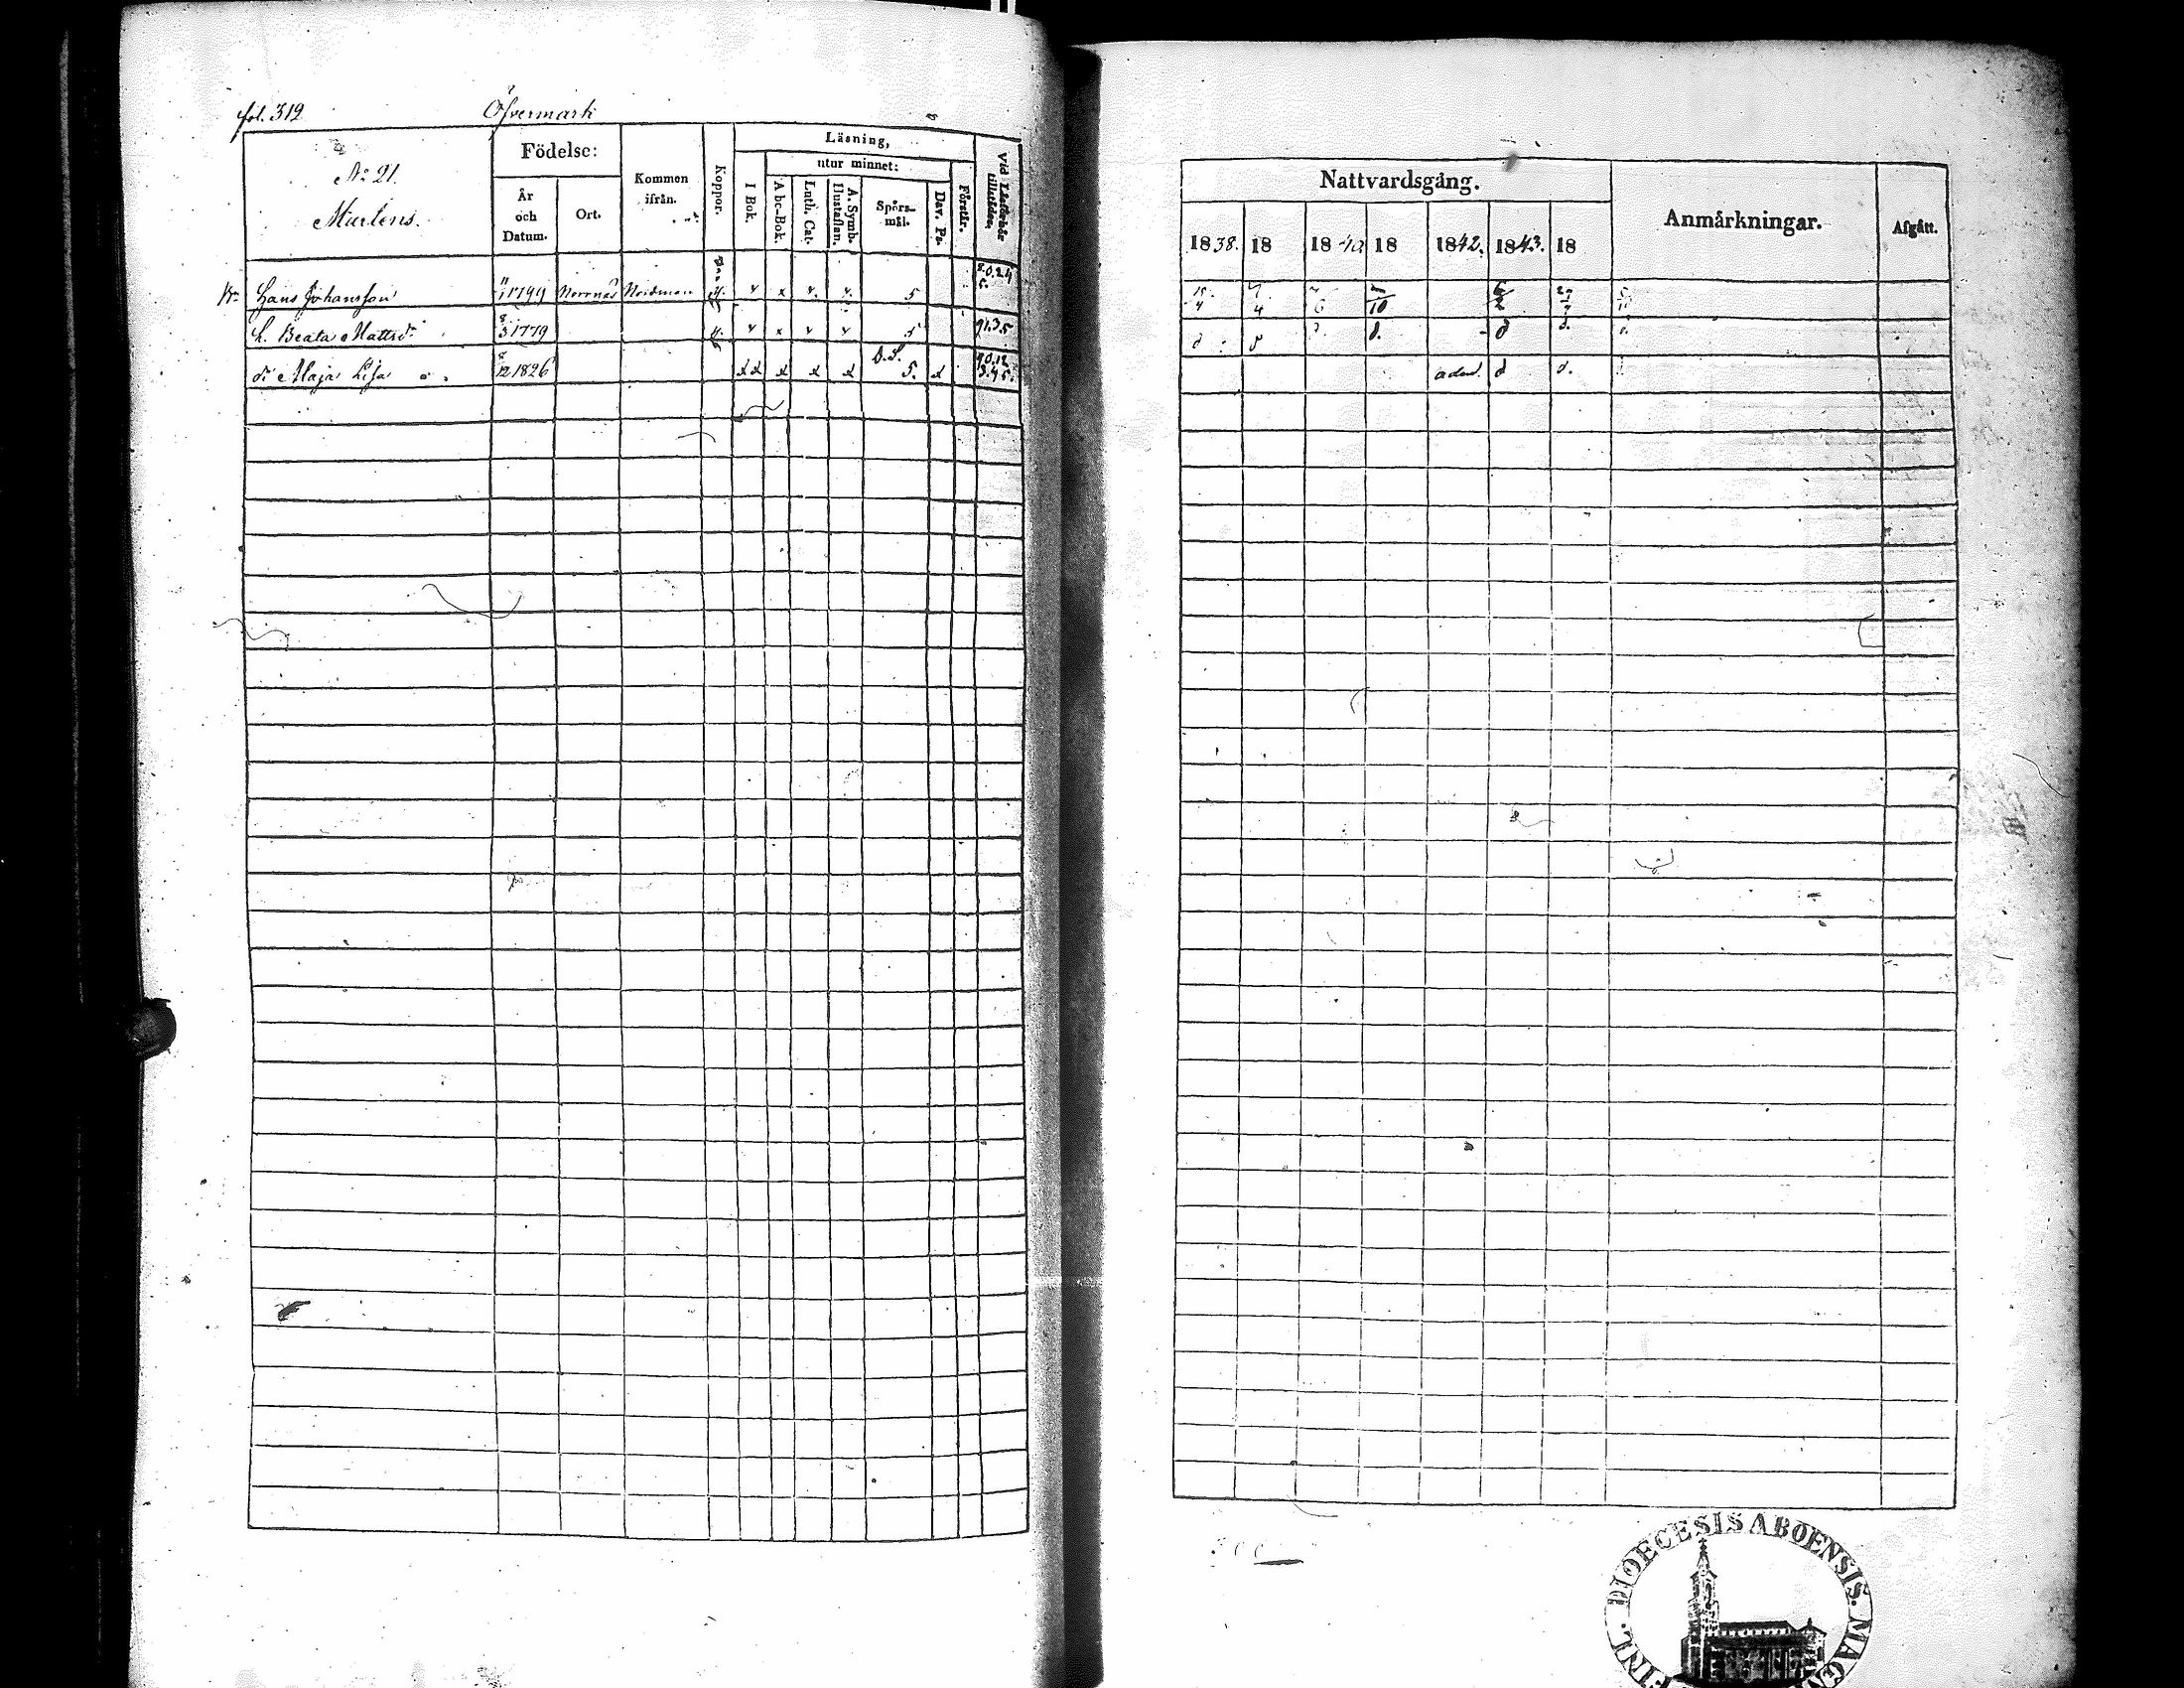 fol. 312 Öfvermark
No 21.
Martens.
Födelse:
År
och
Datum.
Ort.
Kommen
ifrån.
Koppor.
Läsning,
utur minnet:
I Bok.
A bc-Bok.
Luth. Cat.
A. Symb.
Hustaflan.
Spörs-
mål.
Dav. Ps.
Förstår.
Vid Läseförhör
tillstädes.
Hans Johansson 11/1 1799 Norrnäs Nordman 5
h. Beata Mattsdr 8/3 1779 5
dr Maja Lisa 8/12 1826 5.
Nattvardsgång.
1838. 18 1840 18 1842. 1843. 18
Anmärkningar.
Afgått.
15/4 7/4 7/6 7/10
d d d. d d.
adm. d d.
FINL. DIOECESIS ABOENSIS. MAGN